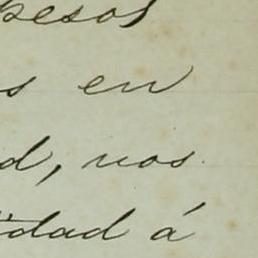 pesos
s en
d, nos
idad á